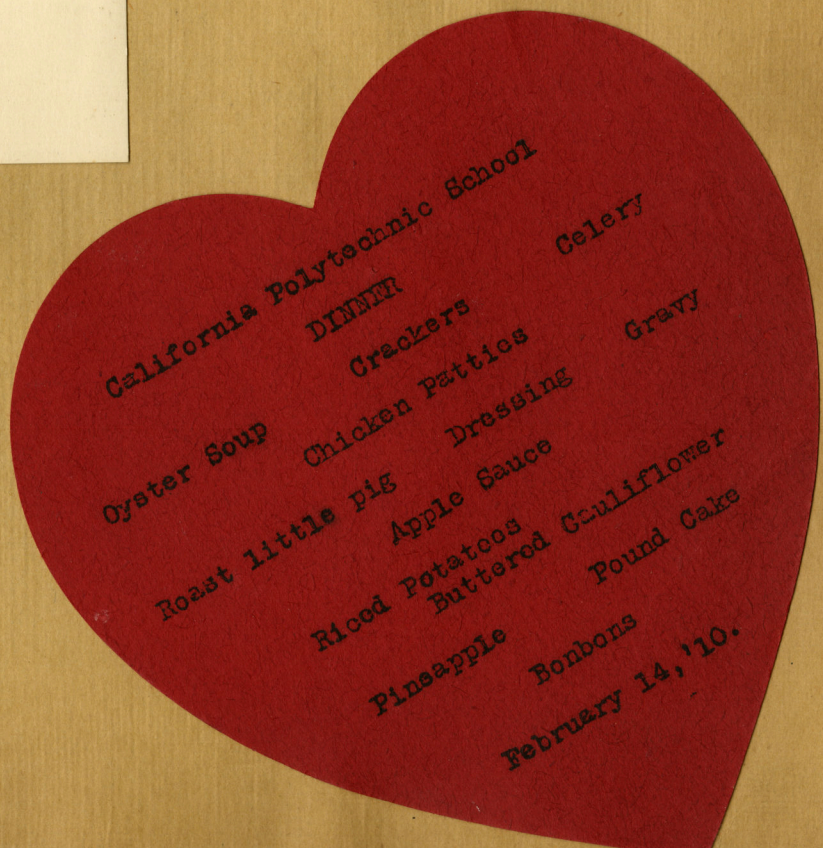 California Polytechnic School
DINNER
Oyster Soup Crackers Celery
Chicken Patties
Roast little pig Dressing Gravy
Apple Sauce
Riced Potatoes
Buttered Cauliflower
Pineapple Pound Cake
Bonbons
February 14,'10.